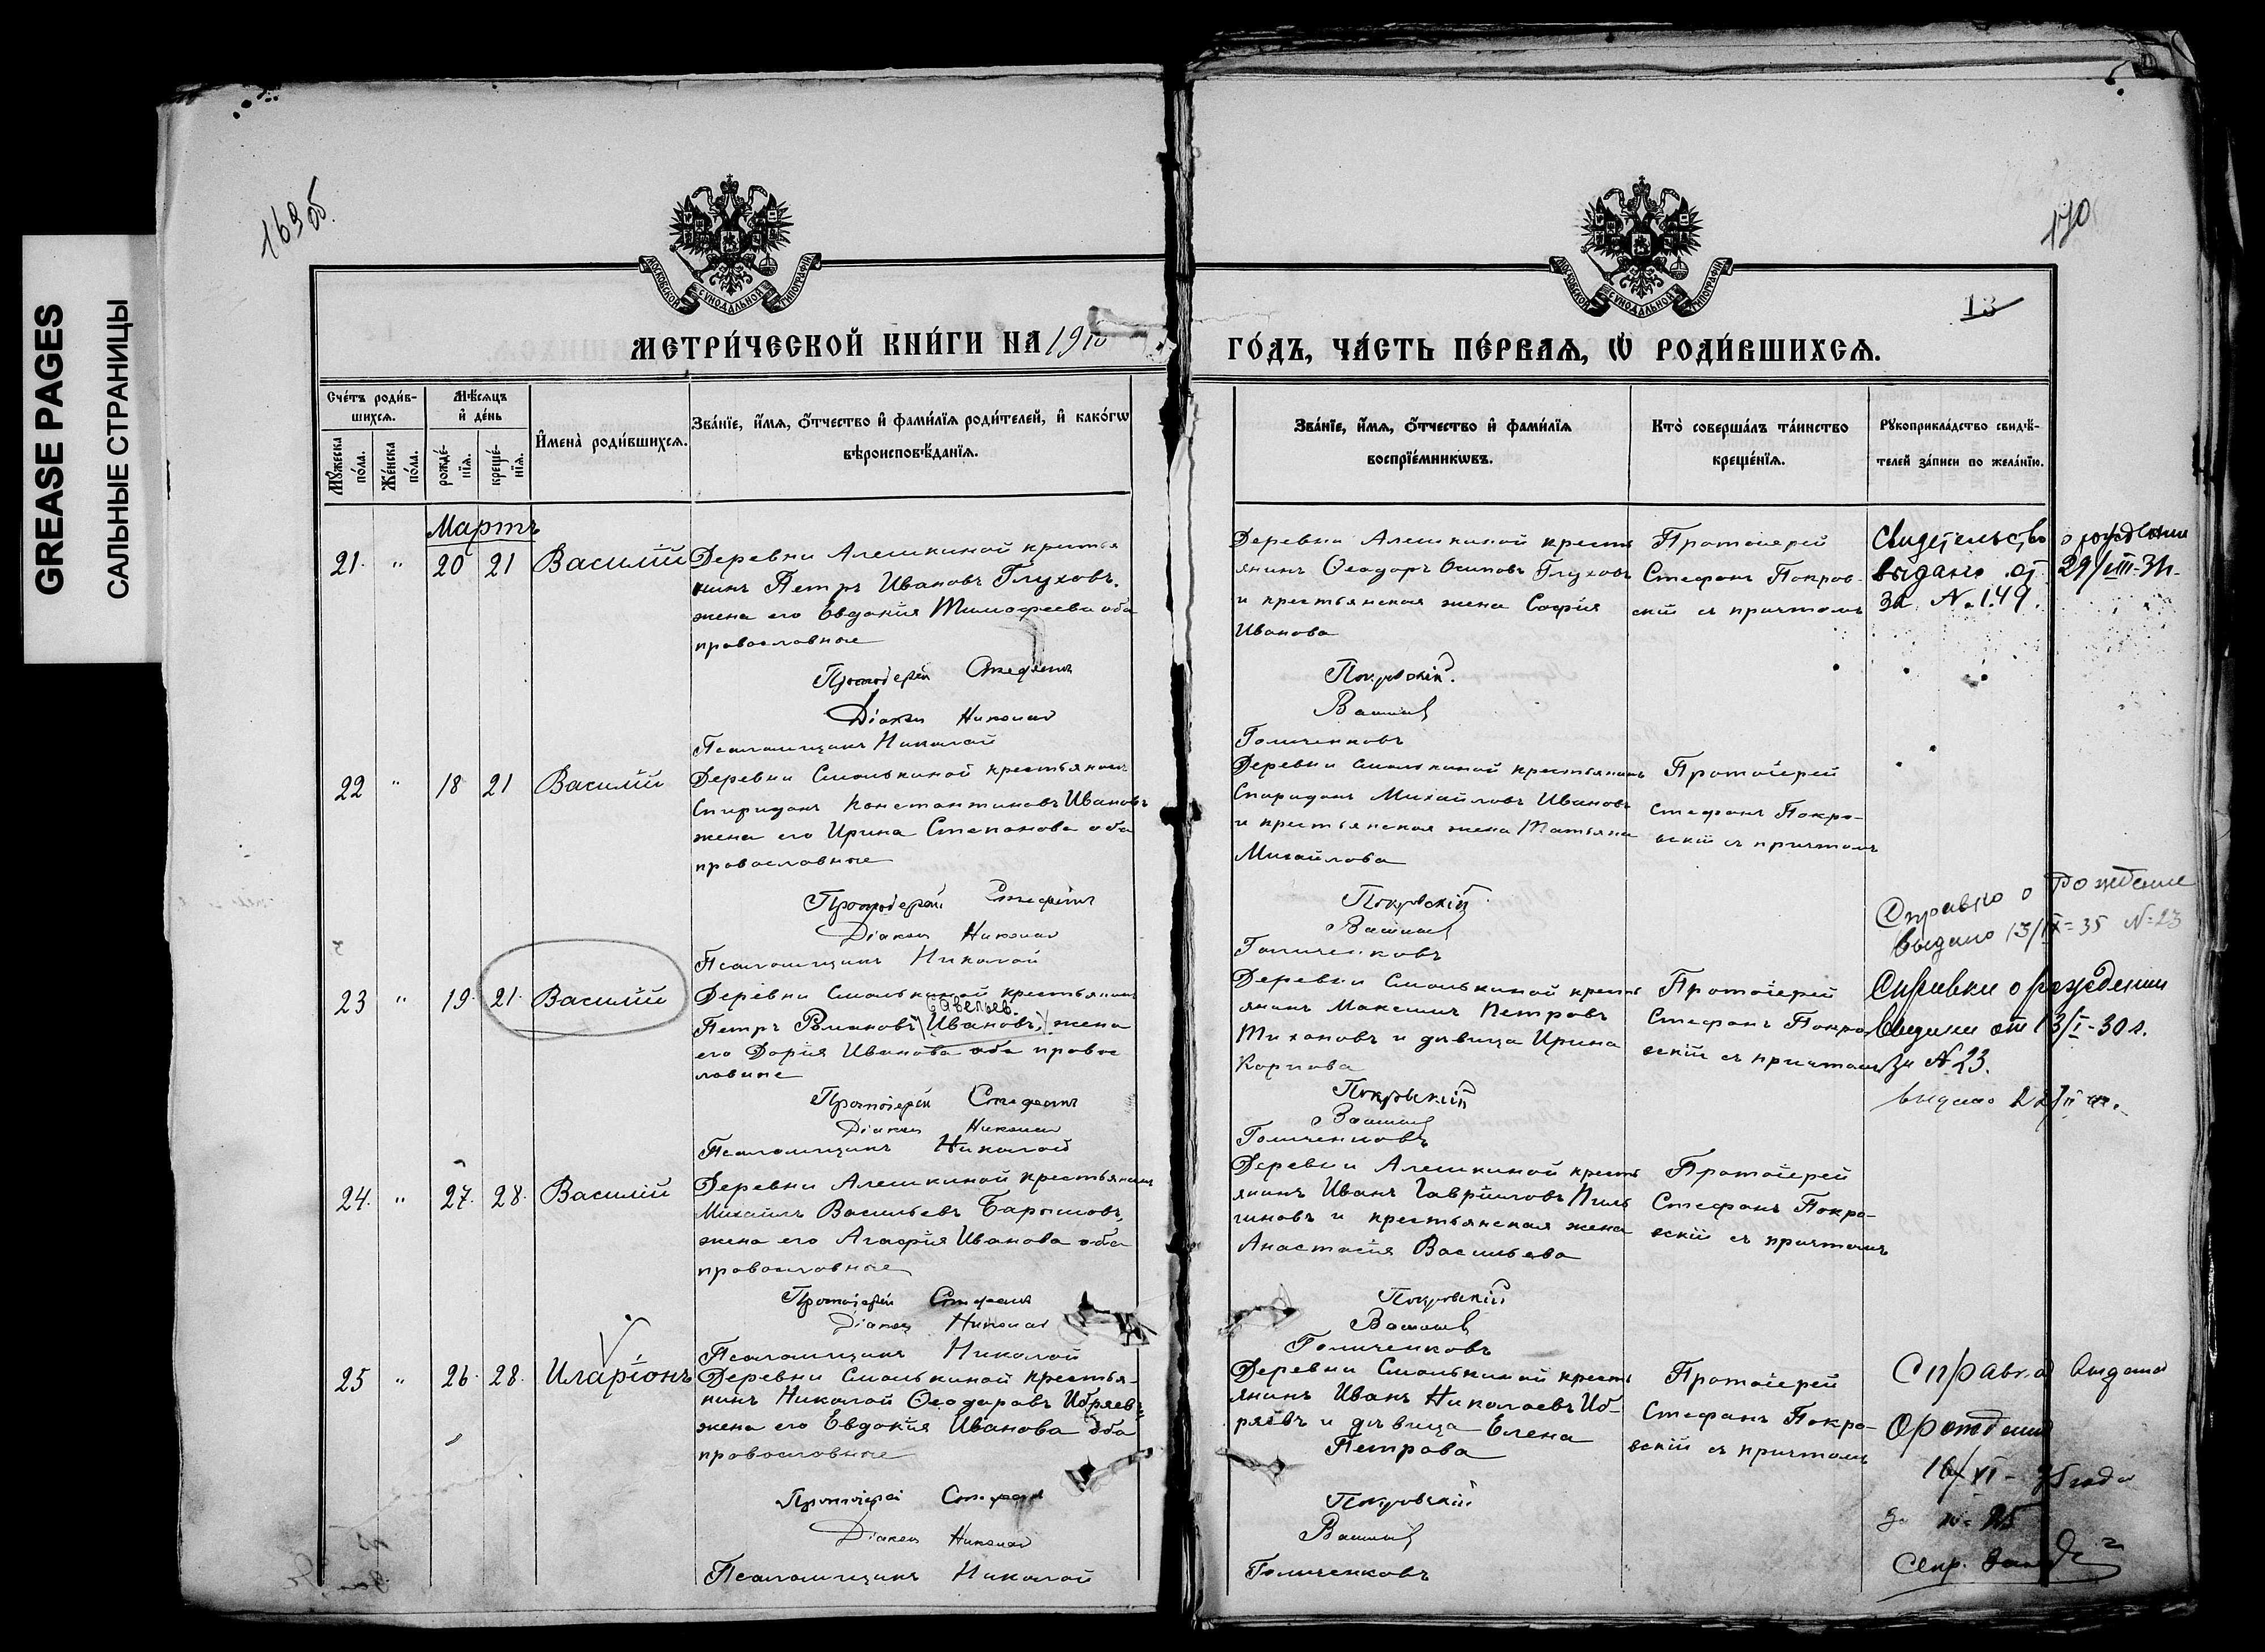 GREASE PAGES
САЛЬНЫЕ СТРАНИЦЫ
169об.
170
МОСКОВСКОЙ СѴНОДАЛЬНОЙ ТИПОГРАФІИ
МОСКОВСКОЙ СѴНОДАЛЬНОЙ ТИПОГРАФІИ
13
МЕТРИ́ЧЕСКОЙ КНИ́ГИ НА 1910
ГО́ДЪ, ЧА́СТЬ ПЕ́РВАЯ, Ѡ РОДИ́ВШИХСЯ.
Сче́тъ роди́в-
шихся.
Мѣ́сяцъ
и҆ де́нь
И҆мена̀ роди́вшихся.
Зва́нїе, и҆́мя, ѻ҆́тчество и҆ фами́лїя роди́телей, и҆ како́гѡ
вѣроисповѣ́данїя.
Мꙋ́жеска
по́ла.
Же́нска
по́ла.
рожде́-
нїя.
креще́-
нїя.
Зва́нїе, и҆́мя, ѻ҆́тчество и҆ фами́лїя
воспрїе́мникѡвъ.
Кто̀ соверша́лъ та́инство
креще́нїя.
Рꙋкоприкла́дство свидѣ́-
телей за́писи по жела́нїю.
Мартъ
21. " 20 21 Василій
Деревни Алешкиной крестья
нинъ Петръ Ивановъ Глуховъ.
жена его Евдокія Тимофеева оба
православные
Протоіерей Стефанъ
Діаконъ Николай
Псаломщикъ Николай
Деревни Алешкиной кресть
янинъ Ѳеодоръ Осиповъ Глуховъ
и крестьянская жена Софія
Иванова
Покровскій.
Голиченковъ
Протоіерей
Стефанъ Покров-
скій съ причтомъ
Свидетельство о рождении
выдано от 29/VIII-31.
за №149.
22 " 18 21 Василій
Деревни Смолькиной крестьянинъ
Спиридонъ Константиновъ Ивановъ
жена его Ирина Степанова оба
православные
Протоіерей Стефанъ
Діаконъ Николай
Псаломщикъ Николай
Деревни Смолькиной крестьянинъ
Спиридонъ Михайловъ Ивановъ
и крестьянская жена Татьяна
Михайлова
Покровскій
Голиченковъ
Протоіерей
Стефанъ Покро-
вскій съ причтомъ
Справка о рождение
выдано 13/IX-35 №23
23 " 19. 21. Василій
Деревни Смолькиной крестьянинъ
Савельев.
Петръ Романовъ Ивановъ, жена
его Дарія Иванова оба правос
лавные
Протоіерей Стефанъ
Діаконъ Николай
Псаломщикъ Николай
Деревни Смолькиной кресть
янинъ Максимъ Петровъ
Тихоновъ и дѣвица Ирина
Карпова
Покровскій
Голиченковъ
Протоіерей
Стефанъ Покро-
вскій съ причтомъ
Справки о рождении
выдана от 13/I-30 г.
за №23.
выдано 22/II
24. " 27. 28. Василій
Деревни Алешкиной крестьянинъ
Михаилъ Васильевъ Барышовъ,
жена его Агафія Иванова оба
православные
Протоіерей Стефанъ
Діаконъ Николай
Псаломщикъ Николай
Деревни Алешкиной кресть
янинъ Иванъ Гавріиловъ Пиль
гиновъ и крестьянская жена
Анастасія Васильева
Покровскій
Голиченковъ
Протоіерей
Стефанъ Покро-
вскій съ причтомъ
25 " 26. 28. Иларіонъ
Деревни Смолькиной крестья-
нинъ Николай Ѳеодоровъ Ибряевъ
жена его Евдокія Иванова оба
православные
Протоіерей Стефанъ
Діаконъ Николай
Псаломщикъ Николай
Деревни Смолькиной кресть
янинъ Иванъ Николаевъ Иб-
ряевъ и дѣвица Елена
Петрова
Покровскій
Голиченковъ
Протоіерей
Стефанъ Покро-
вскій съ причтомъ
Справка выдана
о рождении
16/VI- года
за № 25
Секр.